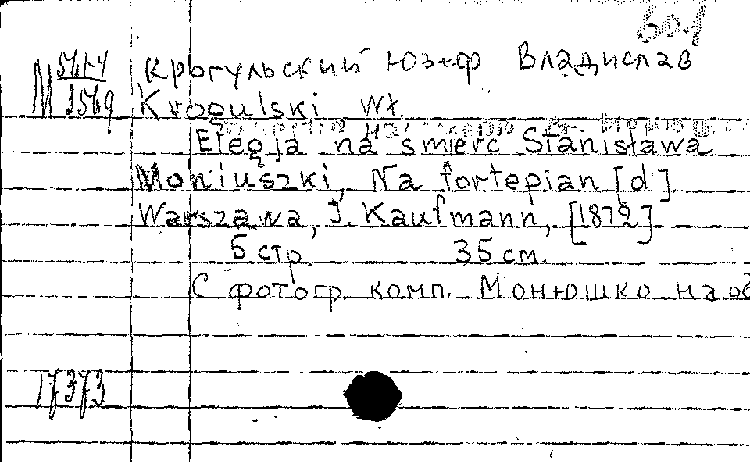 601
М 561-4 / 1569
Крогульский Юзеф Владислав
Krogulski Wł.
Elegja na śmierć Stanisława
Moniuszki, Na fortepian [d]
Warszawa, J. Kaufmann, [1872]
5 стр. 35 см.
С фотогр. комп. Монюшко на об
17373